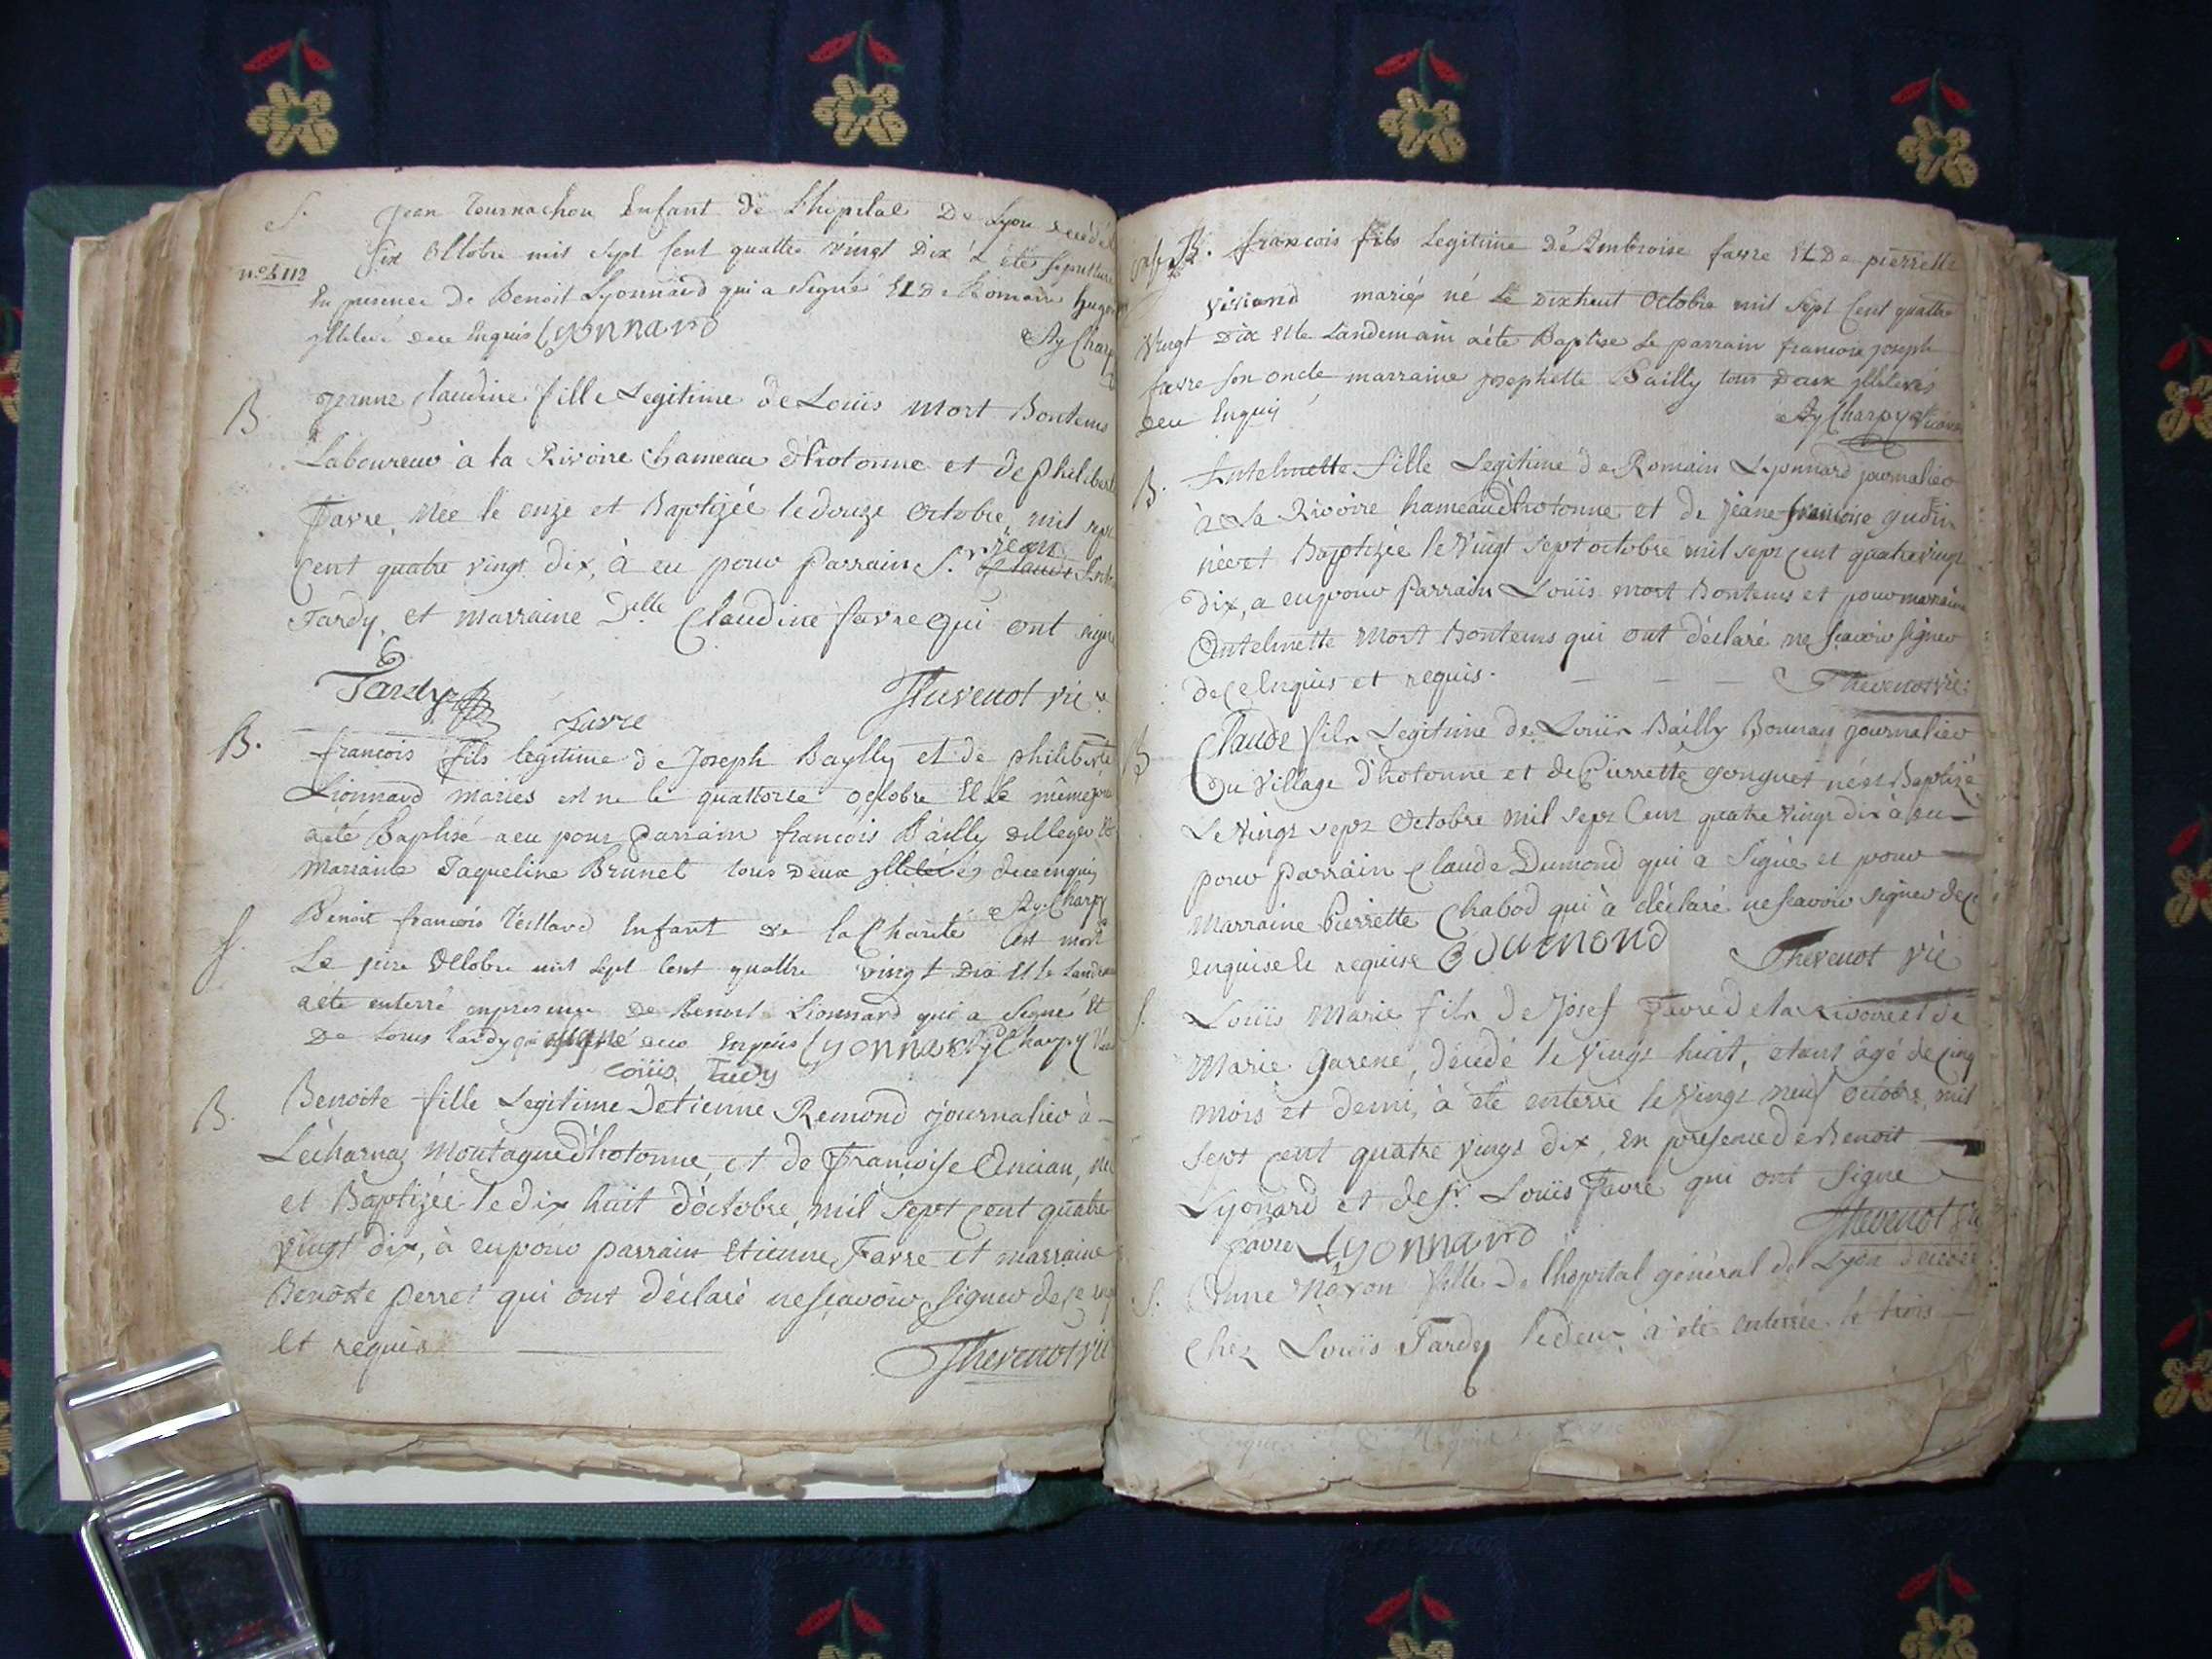 S. Jean Tournachon Enfant De L'hopital De Lyon
Six Octobre mil Sept Cent quattre vingt Dix a été
En presence De Benoit Lyonnard qui a Signé Et De Romain
illeteré Dece Enquis Lyonnard Ay Charpy
B. jeanne Claudine fille Legitime de Loüis Mort Bontems
Laboureur à la Rivoire hameau d'hotonne et de philiberte
Favre, Née le onze et Baptizée le douze Octobre, mil sept
Cent quatre vingt dix, à eu pour Parrain S.r jean
Tardy, et marraine D.elle Claudine favre qui ont signé
Tardy Favre Thevenot vic.re
B. francois fils legitime de Joseph Baylly et de philiberte
Lionnard mariés est né le quattorze octobre Et Le même jour
a été Baptisé a eu pour Parrain francois Bailly
Marainne Jaqueline Brunet tous Deux illeterés dece enquis
Ay Charpy
S. Benoit francois Teillard Enfant de la Charité est mort
Le Octobre mil Sept Cent quattre vingt Dix Et le
a été enterré en presence De Benoit Lionnard qui a Signé Et
De Louis tardy qui signé Enquis Lyonnard Ay Charpy
Loüis Tardy
B. Benoite fille Legitime detienne Remond journalier à
Lécharnas Montagne d'hotonne, et de Françoise Ancian, née
et Baptizée le dix huit d'octobre, mil sept cent quatre
vingt dix, à eu pour parrain Etienne Favre et marraine
Benoite perret qui ont déclaré ne sçavoir signer de ce
et requis Thevenot vic
B. francois fils Legitime De Ambroise favre Et De pierrette
mariés né Le Dixheut Octobre mil Sept Cent quattre
Vingt Dix Et le Landemain a été Baptisé Le parrain francois joseph
favre son oncle marraine josephette Bailly tous Deux illeterés
Dece Enquis Ay Charpy Vicaire
B. Antelmette fille Legitime de Romain Lyonnard journalier
à La Rivoire hameau d'hotonne et de jeane françoise
née et Baptizée le Vingt sept octobre mil sept cent quatre vingt
Dix, a eu pour Parrain Loüis mort Bontems et pour marraine
Antelmette Mort Bontems qui ont déclaré ne sçavoir signer
de ce Enquis et requis. Thevenot vic.
B Claude fils Legitime de Loüis Bailly journalier
Du Village d'hotonne et de Pierrette né et Baptizé
Le Vingt sept Octobre mil sept Cent quatre Vingt dix à eu
pour Parrain Claude Dumond qui a Signé et pour
Marraine Pierrette Chabod qui à déclaré ne sçavoir signer de ce
enquise et requise C Dumond Thevenot vic
S. Loüis Marie fils de Josef Favre de la Rivoire et de
Marie Garene, décédé le Vingt huit, etant âgé de Cinq
mois et demi, à été enterré le Vingt neuf octobre mil
Sept cent quatre Vingt dix, En presence de Benoit
Lyonard et de Sr. Loüis Favre qui ont Signé
favre Lyonnard Thevenot vic
S. Anne fille De l'hopital général de Lyon decedée
Chez Loüis Tardy le deux, à été enterrée le trois